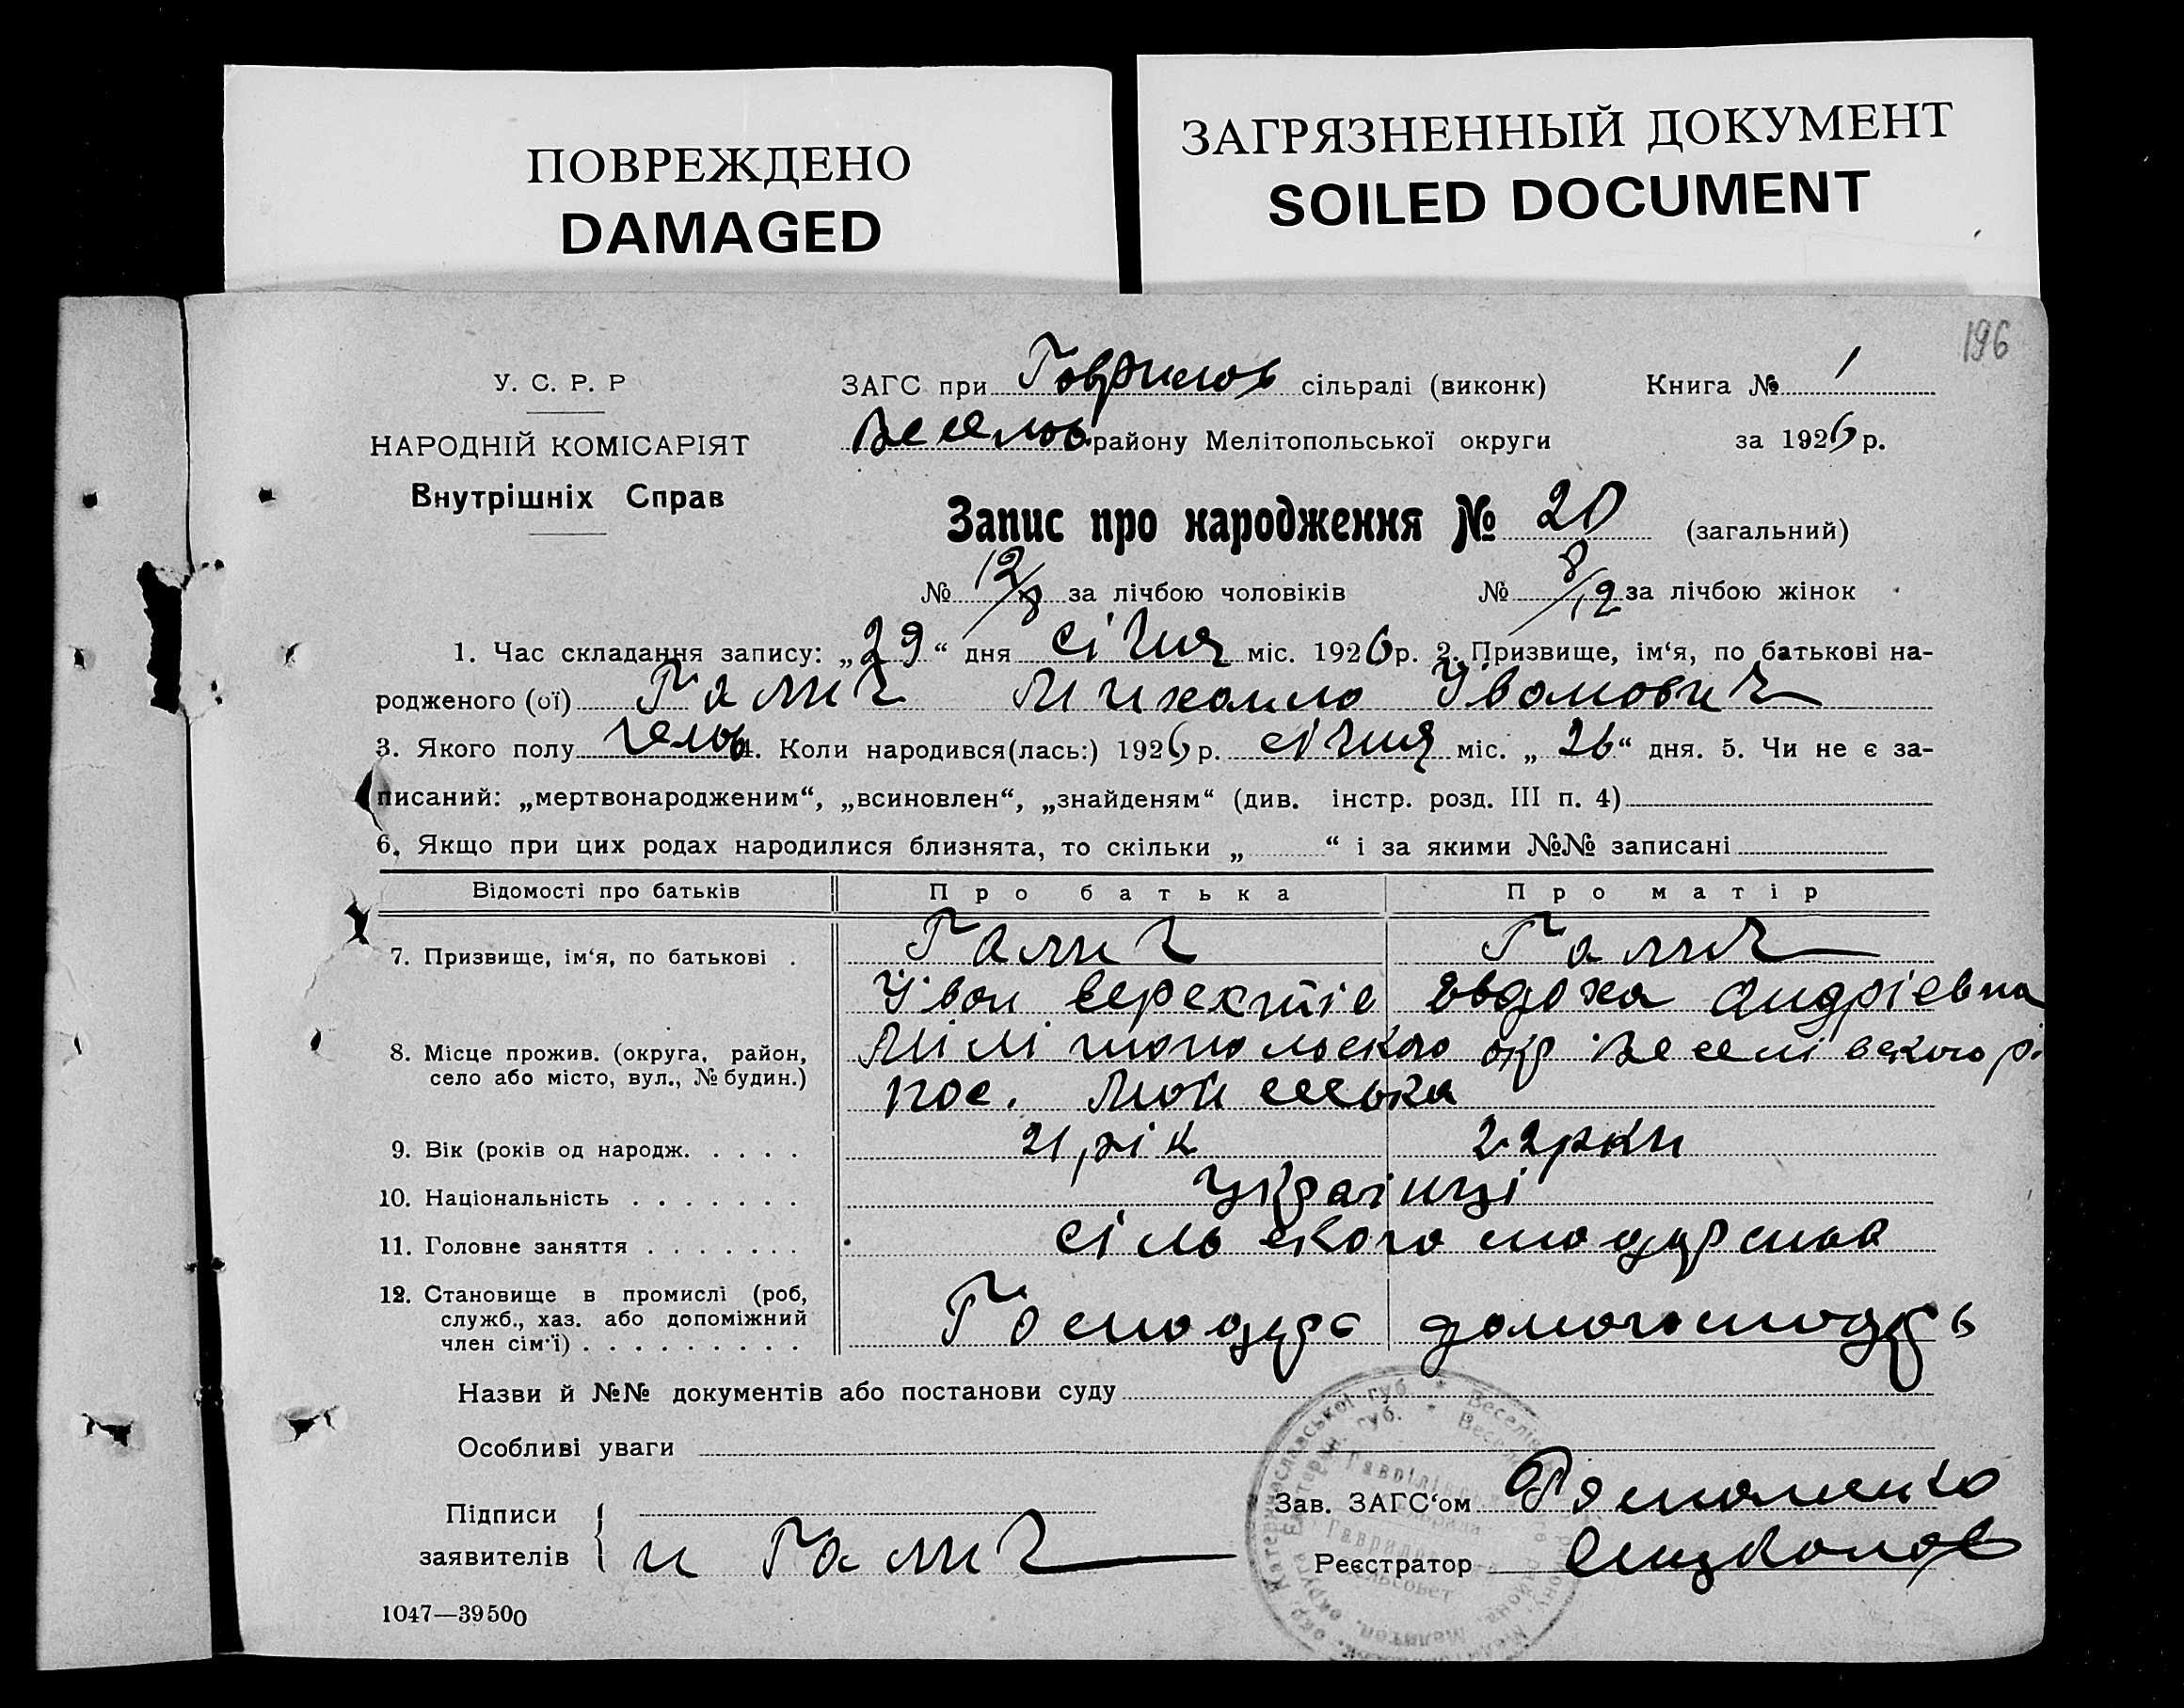 ПОВРЕЖДЕНО
DAMAGED
ЗАГРЯЗНЕННЫЙ ДОКУМЕНТ
SOILED DOCUMENT
196
У. С. Р. Р
НАРОДНІЙ КОМІСАРІЯТ
Внутрішніх Справ
ЗАГС при Гаврилов сільраді (виконк) Книга № 1
Веселов району Мелітопольської округи за 1926 р.
Запис про народження № 20 (загальний)
№ 12/8 за лічбою чоловіків № 8/12 за лічбою жінок
1. Час складання запису: „29“ дня січня міс. 1926 р. 2. Призвище, ім‘я, по батькові на-
родженого (ої) Галич Михаило Іванович
3. Якого полу челов 4. Коли народився(лась:) 1926 р. січня міс. „26“ дня. 5. Чи не є за-
писаний: „мертвонародженим“, „всиновлен“, „знайденям“ (див. інстр. розд. III п. 4)
6. Якщо при цих родах народилися близнята, то скільки „ “ і за якими №№ записані
Відомості про батьків Про батька Про матір
7. Призвище, ім‘я, по батькові . Галич Галич
Іван Евдоха Андрієвна
8. Місце прожив. (округа, район,
село або місто, вул., № будин.)
Мілітопольского окр Веселівского р.
пос.
9. Вік (років од народж. . . . . 21 рік 22 рки
10. Національність . . . . . . . Українці
11. Головне заняття . . . . . . . сільского сподарства
12. Становище в промислі (роб,
служб., хаз. або допоміжний
член сім‘ї) . . . . . . . . . .
Господарь домогосподрь
Назви й №№ документів або постанови суду
Особливі уваги
Підписи
заявителів
и Галич
Зав. ЗАГС‘ом
Реєстратор
1047—39500